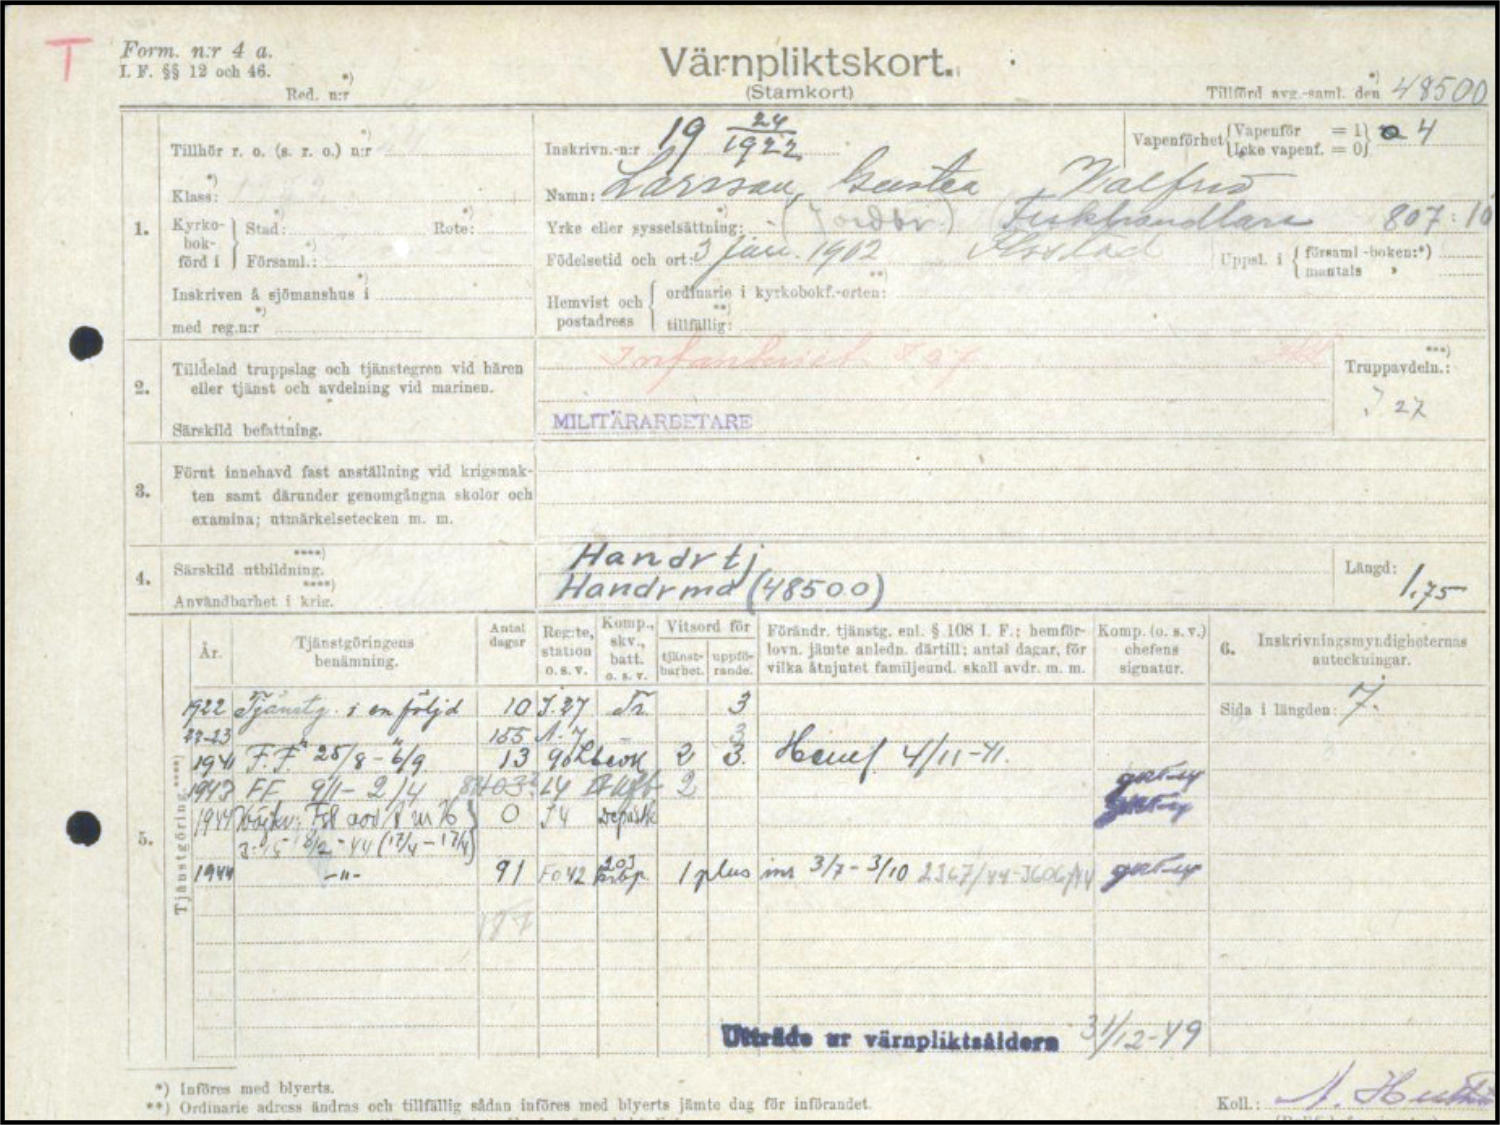 T
Form. n:r 4 a.
I. F. §§ 12 och 46.
Red. n:r *)
Värnpliktskort.
(Stamkort)
Tillförd avg.-saml. den *) 48500
1.
Tillhör r. o. (s. r. o.) n:r *)
Klass: *)
Kyrko-bok-förd i
Stad: *) Rote: *)
Församl.: *)
Inskriven å sjömanshus i *)
med reg.n:r *)
Inskrivn.-n:r 19 24/1922
Vapenförhet Vapenför = 1 Icke vapenf. = 0 *) 4
Namn: Larsson, Gustav Valfrid
Yrke eller sysselsättning: *) (Jordbr.) Fiskhandlare 807:10
Födelsetid och ort: 3 jan. 1902
Uppl. i församl-boken:*) mantals »
Hemvist och postadress
ordinarie i kyrkobokf.-orten: **)
tillfällig: **)
2.
Tilldelad truppslag och tjänstegren vid hären
eller tjänst och avdelning vid marinen.
Särskild befattning.
Infanteriet I 27
MILITÄRARBETARE
Truppavdeln.: ***)
I 27
3.
Förut innehavd fast anställning vid krigsmak-
ten samt därunder genomgångna skolor och
examina; utmärkelsetecken m. m.
4.
Särskild utbildning. ****)
Användbarhet i krig. ****)
Handrtj
Handrmd (48500)
Längd: 1,75
5.
Tjänstgöring.****)
År.
Tjänstgöringens benämning.
Antal dagar
Reg:te, station o. s. v.
Komp., skv., batt. o. s. v.
Vitsord för
tjänst-barhet. uppfö-rande.
Förändr. tjänstg. enl. § 108 I. F.; hemför-
lovn. jämte anledn. därtill; antal dagar, för
vilka åtnjutet familjeund. skall avdr. m. m.
Komp. (o. s. v.) chefens signatur.
6. Inskrivningsmyndigheternas anteckningar.
Sida i längden: 7.
1922 Tjänstg. i en följd 10 I. 27 Tr. 3
22-23 155 A. 7 - 3
1941 F.F. 25/8 - 6/9 13 2 3. Hemf 4/11-41.
1943 FF 9/1 - 2/4 I4 2
1944 0 I4
1944 -"- 91 Fo 42 203 1 plus ins 3/7 - 3/10 2367/44-3606/44
187
Utträde ur värnpliktsåldern 31/12-49
*) Införes med blyerts.
**) Ordinarie adress ändras och tillfällig sådan införes med blyerts jämte dag för införandet.
Koll.: